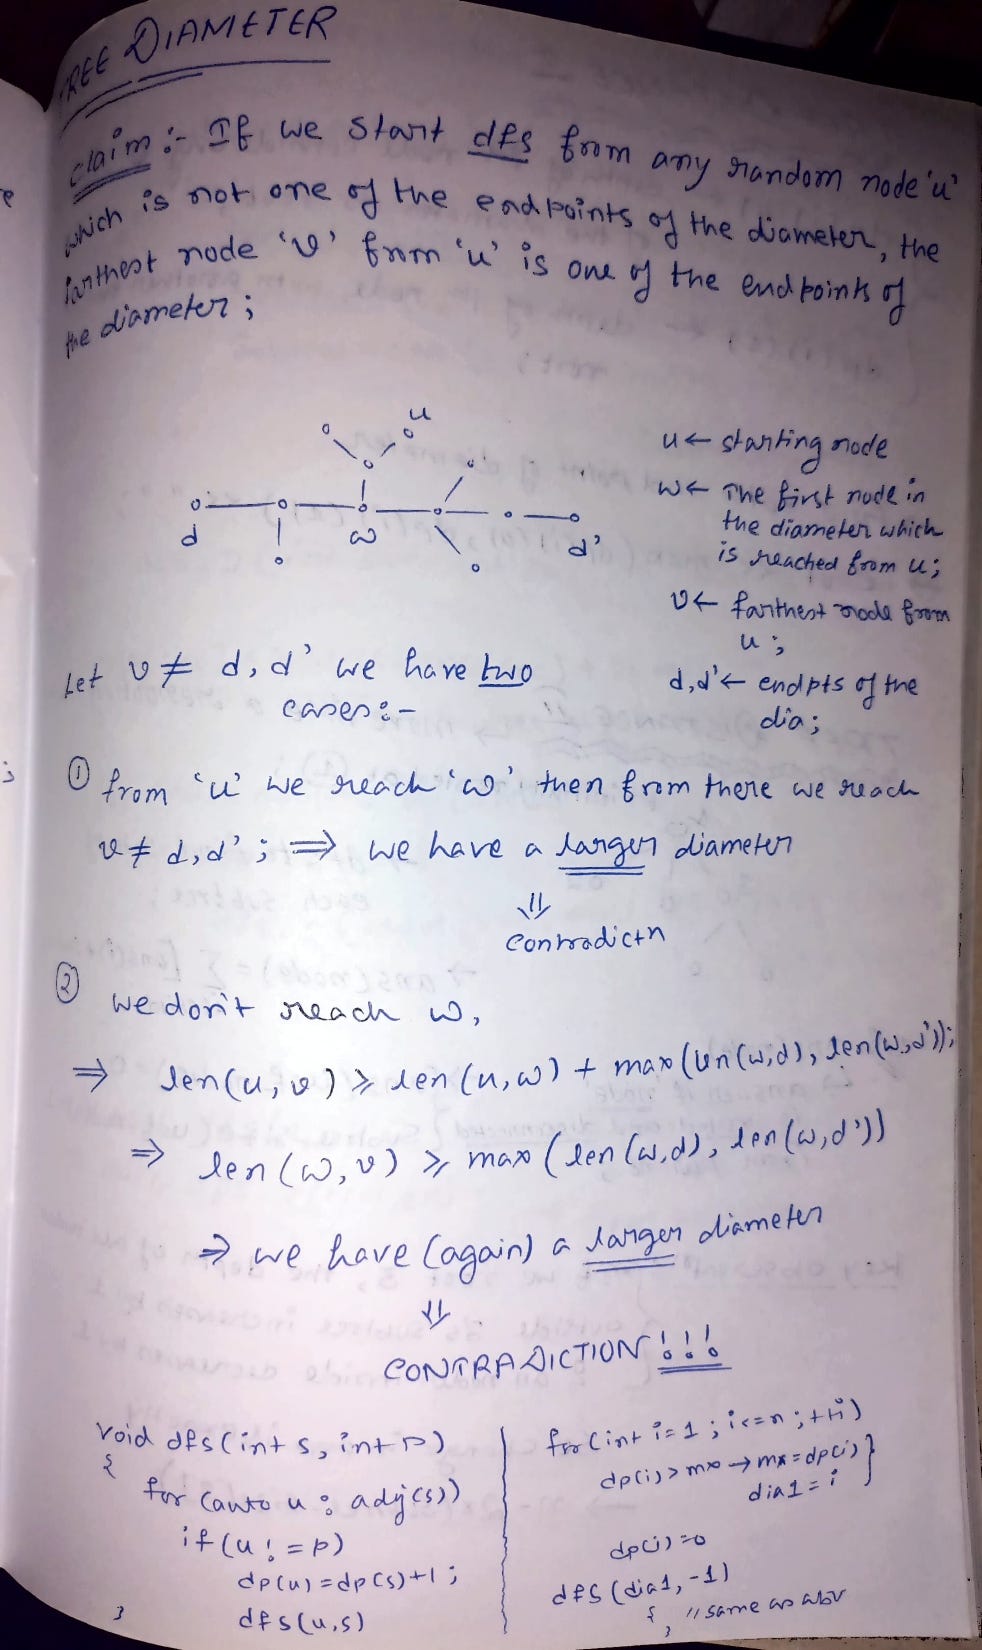 TREE DIAMETER
claim :- If we start dfs from any random node 'u'
which is not one of the endpoints of the diameter, the
farthest node 'v' from 'u' is one of the endpoints of
the diameter ;
u
d
w
d'
u ← starting node
w ← The first node in
the diameter which
is reached from u ;
v ← farthest node from
u ;
d,d' ← endpts of the
dia ;
Let v ≠ d, d' we have two
cases :-
① from 'u' we reach 'w' then from there we reach
v ≠ d, d' ; ⇒ we have a larger diameter
⇓
Contradictn
② we don't reach w,
⇒ len(u, v) ≥ len(u, w) + max(len(w,d), len(w,d'));
⇒ len(w, v) ≥ max(len(w,d), len(w,d'))
⇒ we have (again) a larger diameter
⇓
CONTRADICTION!!!
void dfs(int s, int p)
{
for (auto u : adj(s))
if(u != p)
dp(u) = dp(s)+1 ;
dfs(u,s)
}
for(int i=1 ; i<=n ; ++i)
dp(i) > mx → mx = dp(i) }
dia1 = i
dp(i)=0
dfs(dia1, -1)
{ // same as abv
}